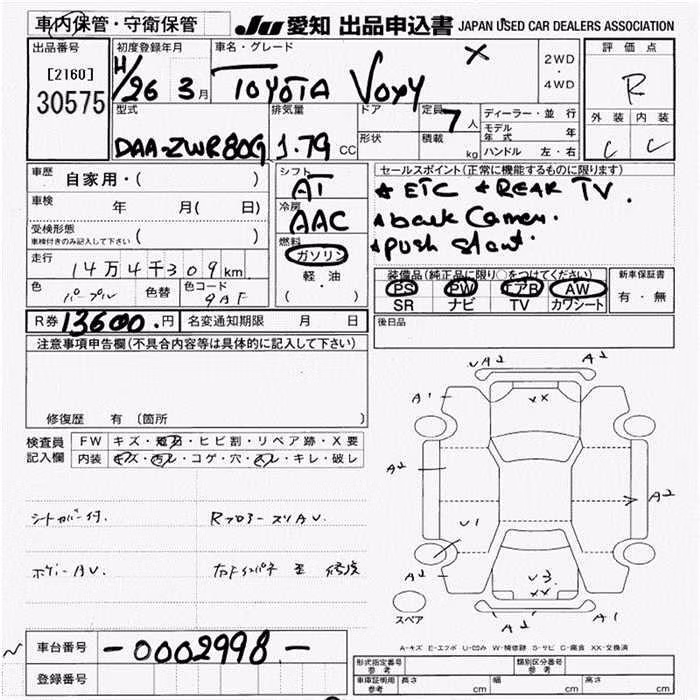 車内保管・守衛保管
JU 愛知 出品申込書 JAPAN USED CAR DEALERS ASSOCIATION
出品番号
[2160]
30575
初度登録年月
H/26 3月
車名・グレード
TOYOTA VOXY X
2WD
・
4WD
評価点
R
外装 内装
C C
型式
DAA-ZWR80G
排気量
1.79 CC
ドア
形状
定員 7人
積載 kg
ディーラー・並行
モデル年式 年
ハンドル 左・右
車歴 自家用・( )
車検 年 月( 日)
受検形態
車検付きのみ記入して下さい ( )
走行
14万4千309km
色 パープル 色替 色コード 9AF
シフト
AT
冷房
AAC
燃料
ガソリン
軽・油
( ・ )
セールスポイント(正常に機能するものに限ります)
★ ETC ★ REAR TV.
★ back Camera.
★ push start.
装備品(純正品に限り○をつけてください)
PS PW エアB AW
SR ナビ TV カワシート
新車保証書
有・無
R券 13600.円 名変通知期限 月 日
後日品
注意事項申告欄(不具合内容等は具体的に記入して下さい)
修復歴 有〔箇所 〕
検査員記入欄
FW キズ・飛石・ヒビ割・リペア跡・X要
内装 キズ・汚レ・コゲ・穴・スレ・キレ・破レ
シートカバー付. Rフロアースリ AU.
ボディーAU.
UA2 A2
A1 XX
A2
A2
U1
A2 U3 XX
A2 A1
スペア
A-キズ E-エクボ U-凹み W-補修跡 S-サビ C-腐食 XX-交換済
車台番号 -0002998-
登録番号
形式指定番号 参考 類別区分番号 参考
車庫証明用 参考 長さ cm 幅 cm 高さ cm